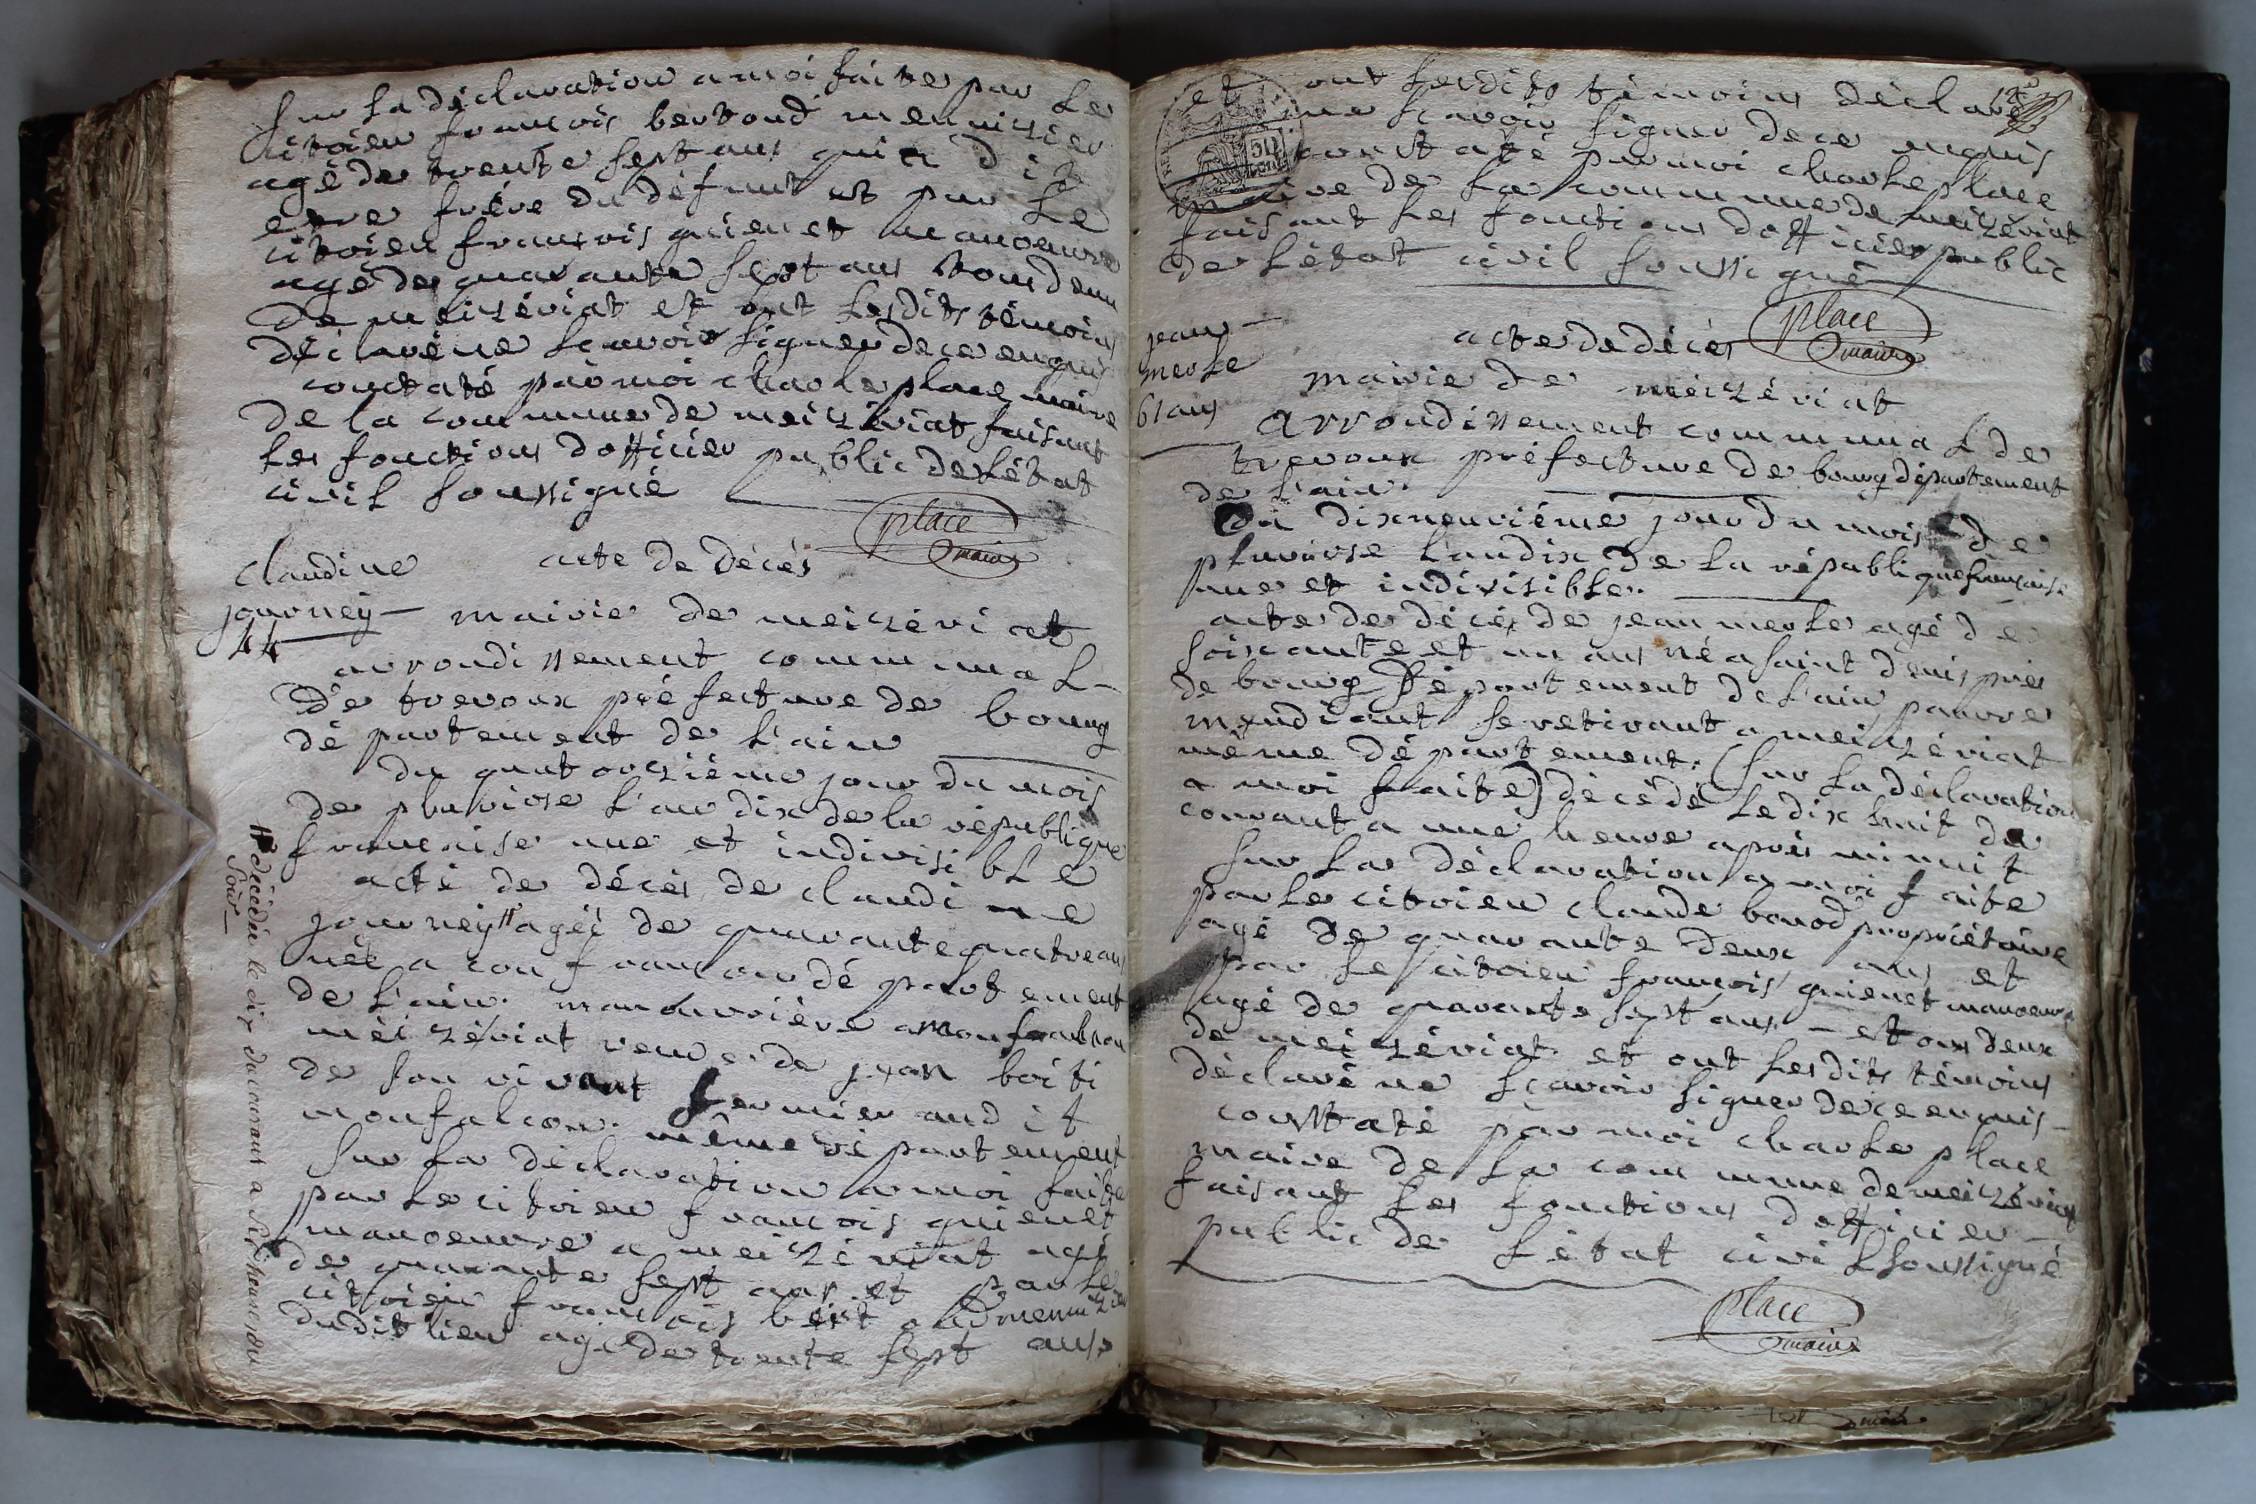 Sur la déclaration a moi faite par le
citoien francois bertoud menuisier
agé de trente sept ans qui a dit
etre frére du défunt et par le
citoien francois guienet manoeuvre
agé de quarante sept ans tous deux
de meizériat et ont lesdits témoins
déclaré ne scavoir signer de ce enquis
constaté par moi charle place maire
de la commune de meizériat faisant
les fonctions dofficier public de létat
civil soussigné
place
maire
claudine
journey
44
acte de décés
mairie de meizériat
arrondissement communal
de trevoux préfecture de bourg
département de l'ain
du quatorziéme jour du mois
de pluviose l'an dix de la république
francaise une et indivisible
acte de décés de claudine
journey # agéé de quarante quatre ans
néé a confrancon département
de l'ain. manouvriére a monfalcon
meizériat veuve de jean boiti
de son vivant fermier audit
monfalcon. même département
Sur la déclaration a moi faite
par le citoien francois guienet
manoeuvre a meizériat agé
de quarante sept ans et par le
citoien francois bertoud menuizier
dudit lieu agé de trente sept ans
# décédée le dix du courant a sept heures du
soir
et ont lesdits témoins déclaré
ne scavoir signer de ce enquis
constaté par moi charle place
maire de la commune de meizériat
faisant les fonctions dofficier public
de l'état civil soussigné
place
maire
jean
merle
61 ans
acte de décés
mairie de meizériat
arrondissement communal de
trevoux préfecture de bourg département
de l'ain.
du dixneuviéme jour du mois de
pluviose l'an dix de la république francaise
une et indivisible.
acte de décés de jean merle agé de
soixante et un ans né a saint denis prés
de bourg département de l'ain, pauvre
mendiant se retirant a meizériat
même département. (sur la déclaration
a moi faite) décédé le dix huit du
courant a une heure aprés minuit
Sur la déclaration a moi faite
par le citoien claude bonod propriétaire
agé de quarante deux ans et
par le citoien francois guienet manoeuvre
agé de quarante sept ans — et ous deux
de meizériat et ont lesdits témoins
déclaré ne scavoir signer de ce enquis
constaté par moi charle place
maire de la commune de meizériat
faisant les fonctions dofficier
public de l'état civil soussigné
place
maire